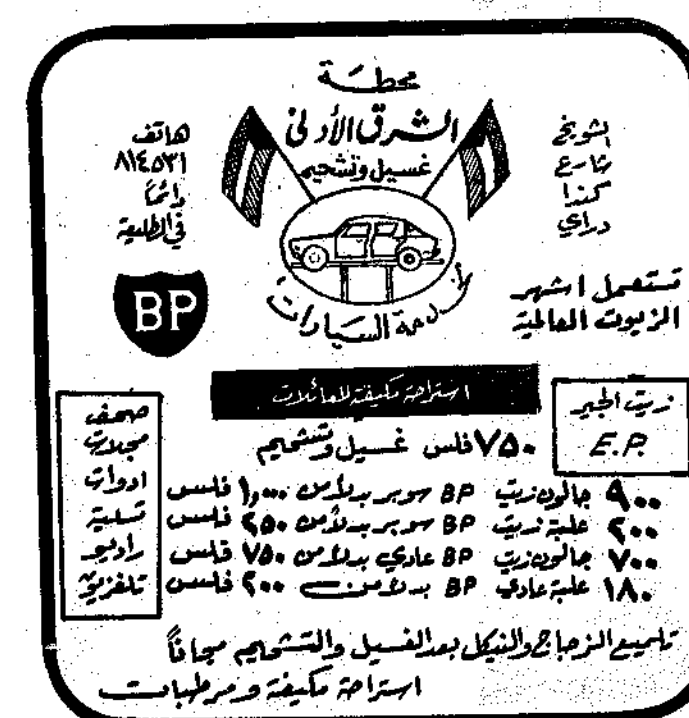 محطة
الشرق الأدنى
غسيل وتشحيم
لخدمة السيارات
الشويخ
شارع
كندا
دراي
هاتف
٨١٤٥٣١
دائماً
في الطليعة
BP
تستعمل اشهر
الزيوت العالمية
استراحة مكيفة للعائلات
زيت الجير
E.P.
٧٥٠ فلس غسيل وتشحيم
٩٠٠ جالون زيت BP سوبر بدلاً من ١,٠٠٠ فلس
٢٠٠ علبة زيت BP سوبر بدلاً من ٢٥٠ فلس
٧٠٠ جالون زيت BP عادي بدلاً من ٧٥٠ فلس
١٨٠ علبة عادي BP بدلاً من ٢٠٠ فلس
صحف
مجلات
ادوات
تسلية
راديو
تلفزيون
تلميع الزجاج والنيكل بعد الغسيل والتشحيم مجاناً
استراحة مكيفة ومرطبات